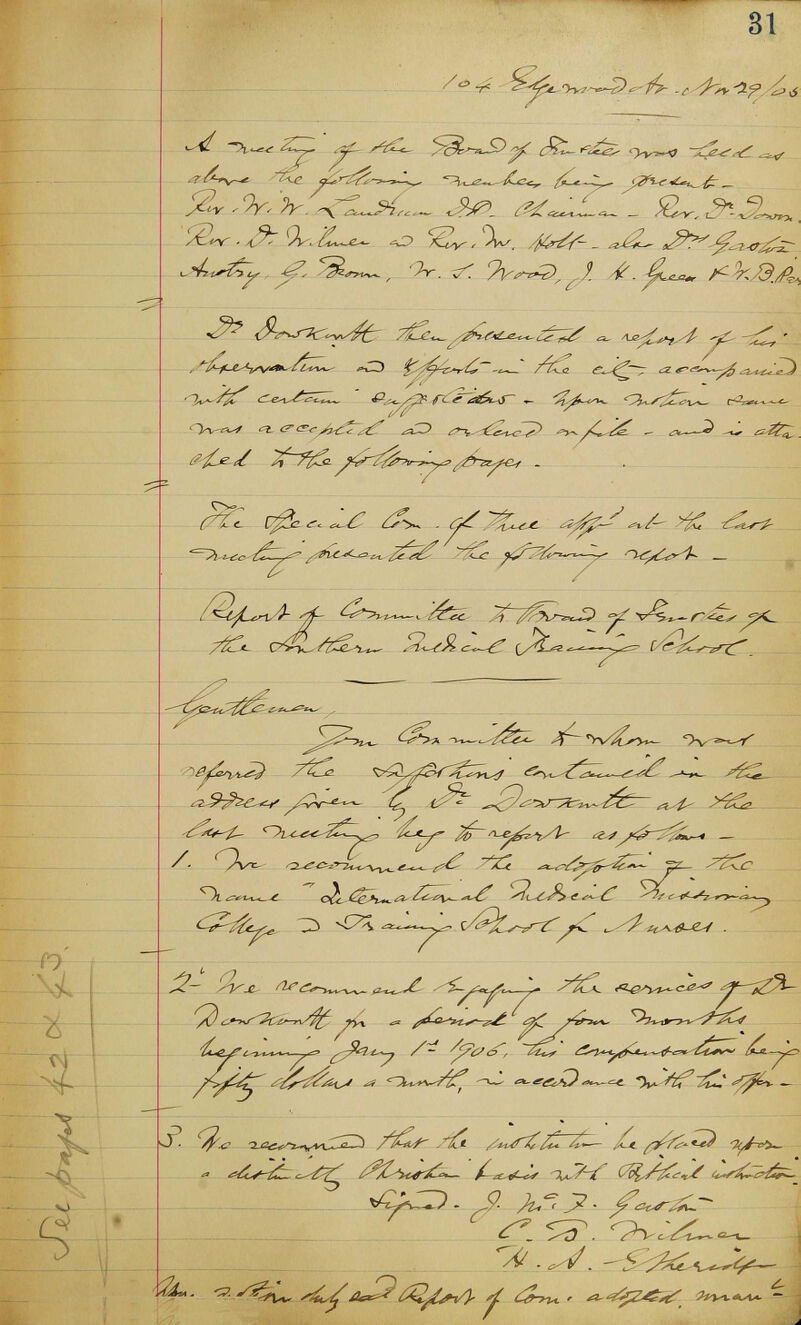 31
104 Edgewood Av. Nov 29/05
A meeting of the Board of Trustees was held as
above the following members being present -
Rev. W. W. Landrum D.D. Chairman - Rev. Dr.
Rev. Dr. Wilmer and Rev. Mr. Holt - also Drs Gaston,
Autry, G. Brown, W. S. Wood, J. H. Green & W. B.
Dr Dowkontt then presented a report of his
observation and efforts in the city, accompanied
with certain suggestions - Upon motion same
was accepted and ordered on file - and is atta-
ched to the following pages -
The Special Com. of three appd at the last
meeting presented the following report -
Report of Committee to Board of Trustees of
the Southern Medical Training School.
Gentlemen,
Your Committee to whom was
referred the suggestions contained in the
address given by Dr. Dowkontt at the
last meeting beg to report as follows -
1. We recommend the adoption of the
name "International Medical Missionary
College and Training School for Nurses.
2d We recommend engaging the services of Dr
Dowkontt for a period of four months
beginning Jany 1st 1906, his compensation being
fifty dollars a month, in accordance with his offer -
3. We recommend that the institution be placed upon
a distinctly Christian basis with Biblical instruction.
Signed. J. McF. Gaston
C. B. Wilmer
H. A. Etheridge
motion duly Report of Com. adopted.
See pages 42 & 43.